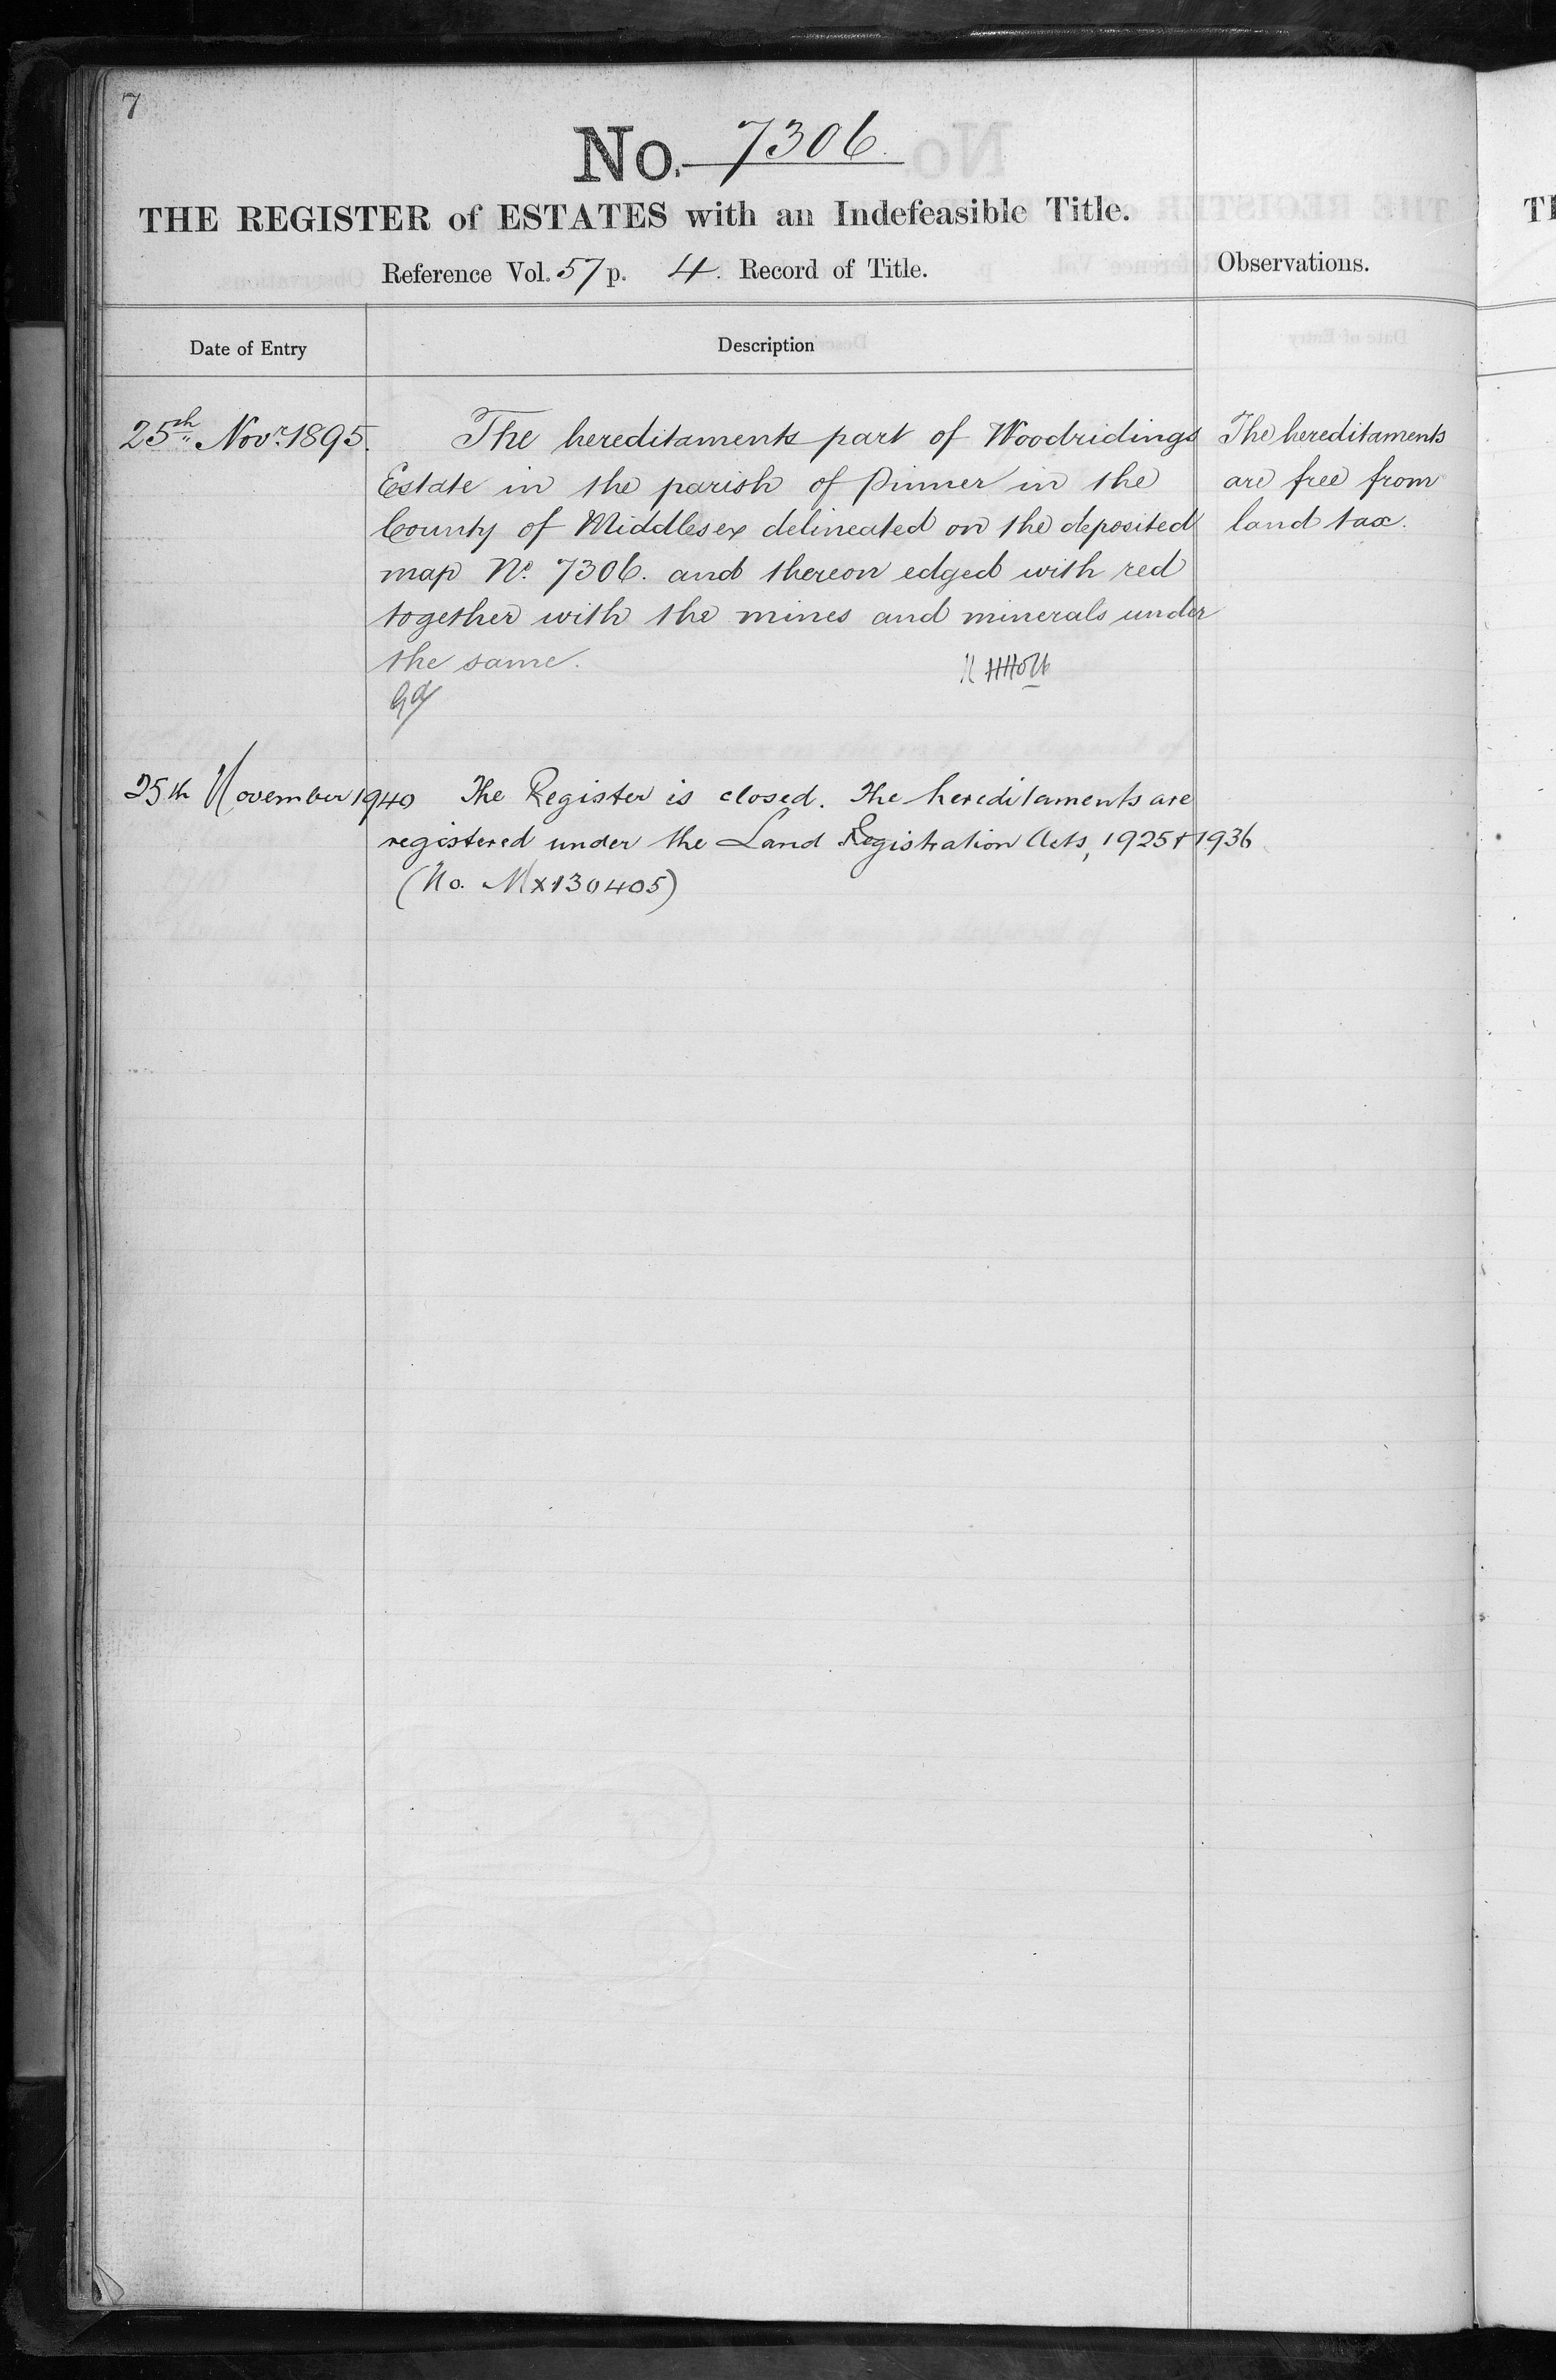 7
No. 7306.
THE REGISTER of ESTATES with an Indefeasible Title.
Reference Vol. 57 p. 4. Record of Title.
Observations.
Date of Entry
Description
25th Novr. 1895.
The hereditaments part of Woodridings
Estate in the parish of Pinner in the
County of Middlesex delineated on the deposited
map No. 7306. and thereon edged with red
together with the mines and minerals under
the same.
The hereditaments
are free from
land tax.
25th November 1940
The Register is closed. The hereditaments are
registered under the Land Registration Acts, 1925 & 1936
(No. Mx130405)